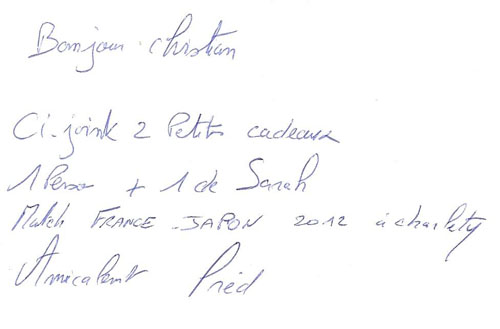 Bonjour christian
Ci-joint 2 Petits cadeaux
1 Perso + 1 de Sarah
Match FRANCE-JAPON 2012 à charlety
Amicalement